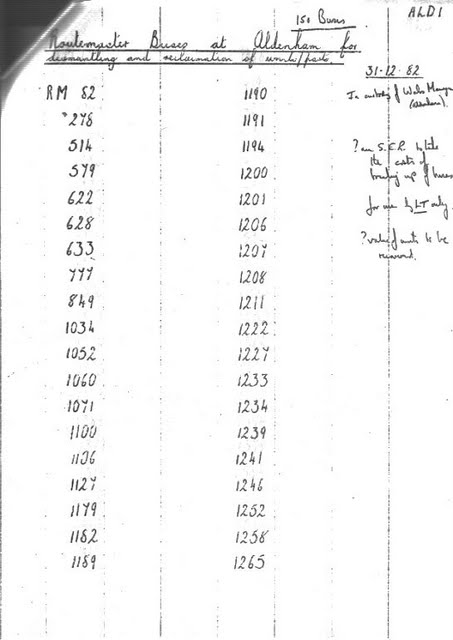 150 Buses
ALD1
Routemaster Buses at Aldenham for
dismantling and reclamation of units/parts.
31-12-82
RM 82 1190 In custody of Works Manager
278 1191 (Aldenham).
514 1194 ? an S.C.R. to
579 1200 the costs of
breaking up of buses
622 1201 for use by LT only
628 1206
633 1207 ? value of units to be
777 1208
849 1211
1034 1222
1052 1227
1060 1233
1071 1234
1100 1239
1106 1241
1127 1246
1179 1252
1182 1258
1189 1265